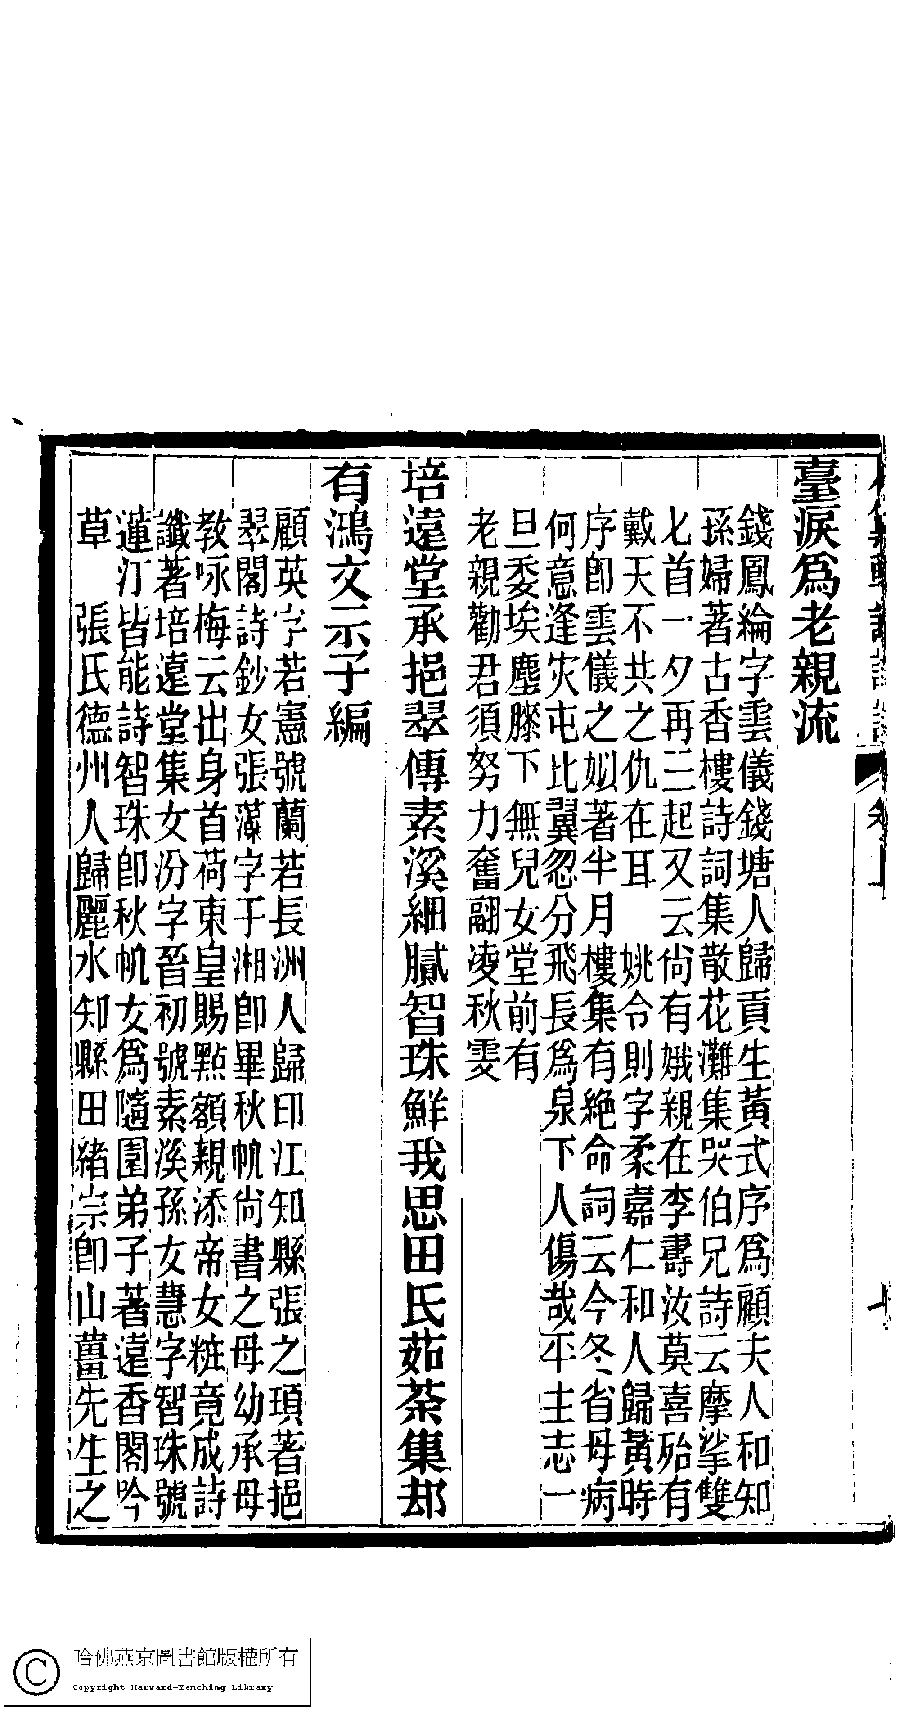 臺淚爲老親流
錢鳳綸字雲儀錢塘人歸貢生黃式序爲顧夫人和知
孫婦著古香樓詩詞集散花灘集哭伯兄詩云摩挲雙
匕首一夕再三起又云尙有娥親在李壽汝莫喜殆有
戴天不共之仇在耳　姚令則字柔嘉仁和人歸黃時
序卽雲儀之姒著半月樓集有絶命詞云今冬省母病
何意逢灾屯比翼忽分飛長爲泉下人傷哉平生志一
旦委埃塵膝下無兒女堂前有
老親勸君須努力奮翮凌秋雯
培遠堂承挹翠傳素溪細膩智珠鮮我思田氏茹荼集却
有鴻文示子編
顧英字若憲號蘭若長洲人歸印江知縣張之頊著挹
翠閣詩鈔女張藻字于湘卽畢秋帆尙書之母幼承母
敎咏梅云出身首荷東皇賜㸃額親添帝女粧竟成詩
讖著培遠堂集女汾字晉初號素溪孫女慧字智珠號
蓮汀皆能詩智珠卽秋帆女爲隨園弟子著遠香閣吟
草　張氏德州人歸麗水知縣田緒宗卽山薑先生之
哈佛燕京圖書館版權所有
Copyright Harvard-Yenching Library